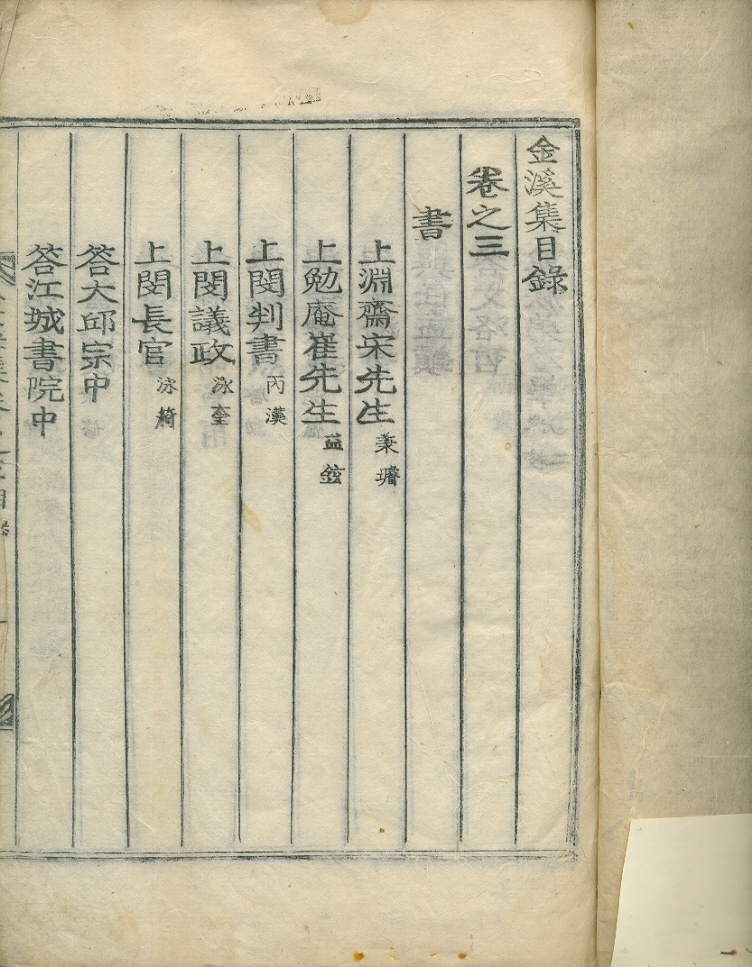 金溪集目錄
卷之三
書
上淵齋宋先生 秉璿
上勉庵崔先生 益鉉
上閔判書 丙漢
上閔議政 泳奎
上閔長官 泳綺
答大邱宗中
答江城書院中